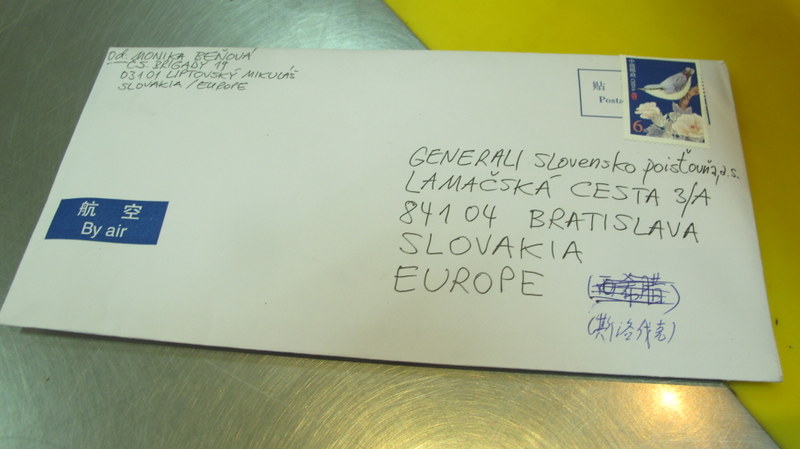 Od: MONIKA BEŇOVÁ
ČS. BRIGÁDY 19
03101 LIPTOVSKÝ MIKULÁŠ
SLOVAKIA/EUROPE
贴
Posta
6
GENERALI Slovensko poisťovňa, a.s.
LAMAČSKÁ CESTA 3/A
841 04 BRATISLAVA
SLOVAKIA
EUROPE
(斯洛伐克)
航 空
By air